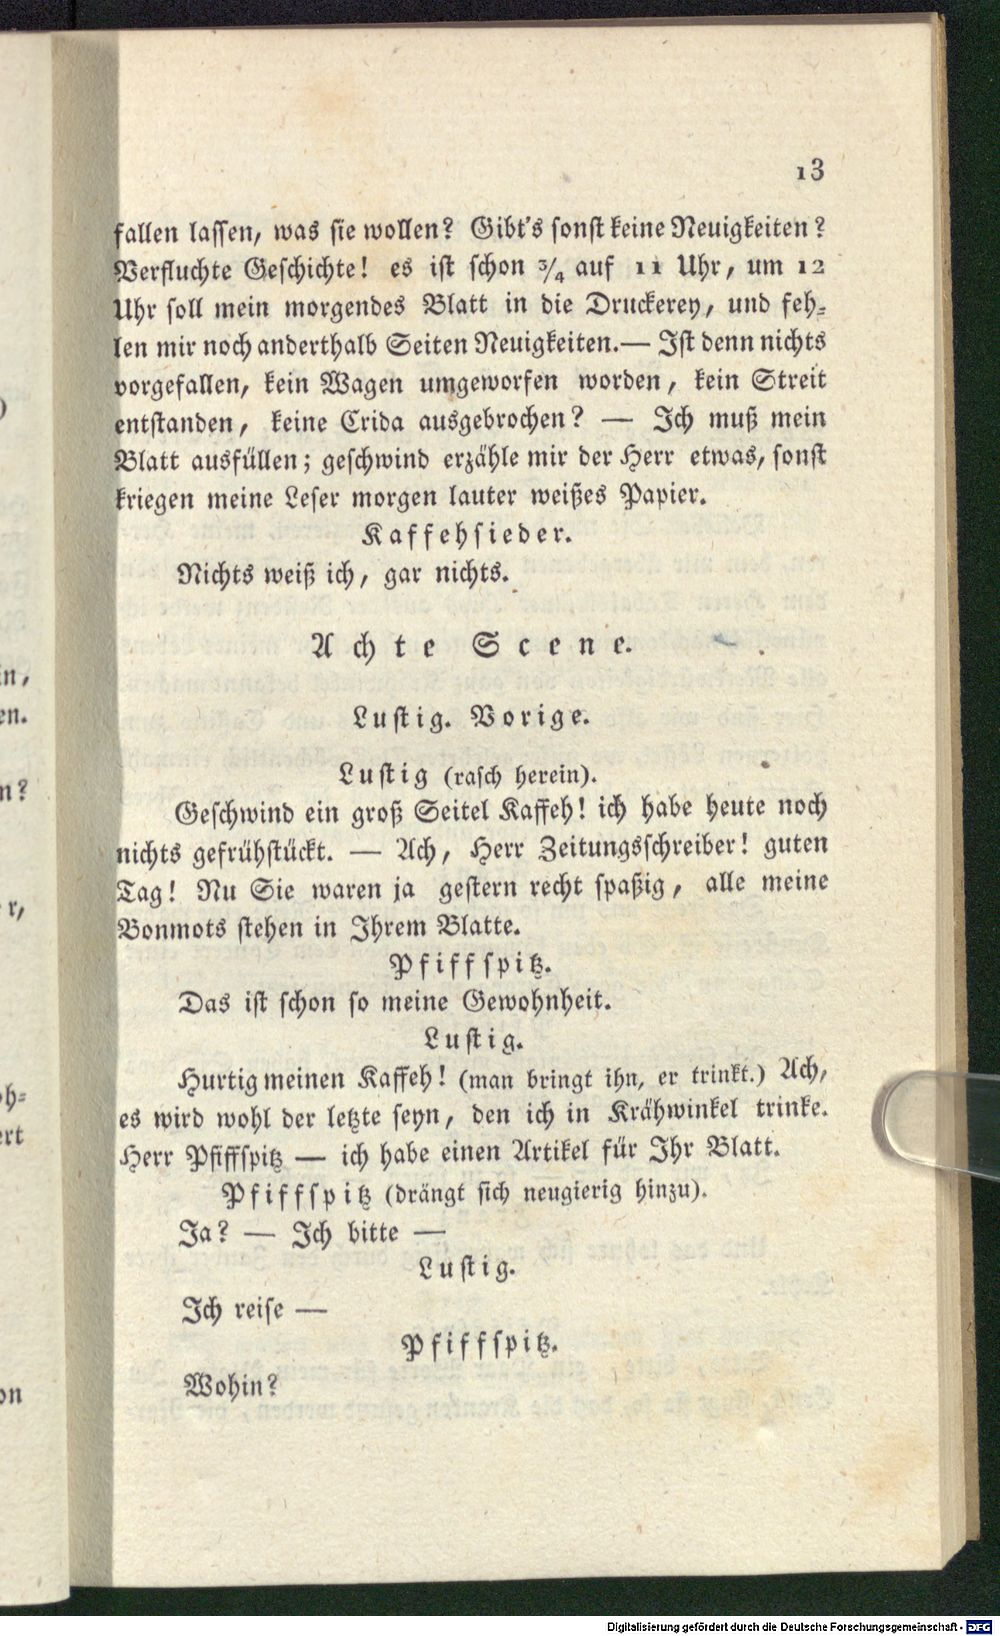 13
fallen lassen, was sie wollen? Gibt's sonst keine Neuigkeiten?
Verfluchte Geschichte! es ist schon ¾ auf 11 Uhr, um 12
Uhr soll mein morgendes Blatt in die Druckerey, und feh-
len mir noch anderthalb Seiten Neuigkeiten.— Ist denn nichts
vorgefallen, kein Wagen umgeworfen worden, kein Streit
entstanden, keine Crida ausgebrochen? — Ich muß mein
Blatt ausfüllen; geschwind erzähle mir der Herr etwas, sonst
kriegen meine Leser morgen lauter weißes Papier.
Kaffehsieder.
Nichts weiß ich, gar nichts.
Achte Scene.
Lustig. Vorige.
Lustig (rasch herein).
Geschwind ein groß Seitel Kaffeh! ich habe heute noch
nichts gefrühstückt. — Ach, Herr Zeitungsschreiber! guten
Tag! Nu Sie waren ja gestern recht spaßig, alle meine
Bonmots stehen in Ihrem Blatte.
Pfiffspitz.
Das ist schon so meine Gewohnheit.
Lustig.
Hurtig meinen Kaffeh! (man bringt ihn, er trinkt.) Ach,
es wird wohl der letzte seyn, den ich in Krähwinkel trinke.
Herr Pfiffspitz — ich habe einen Artikel für Ihr Blatt.
Pfiffspitz (drängt sich neugierig hinzu).
Ja? — Ich bitte —
Lustig.
Ich reise —
Pfiffspitz.
Wohin?
Digitalisierung gefördert durch die Deutsche Forschungsgemeinschaft - DFG